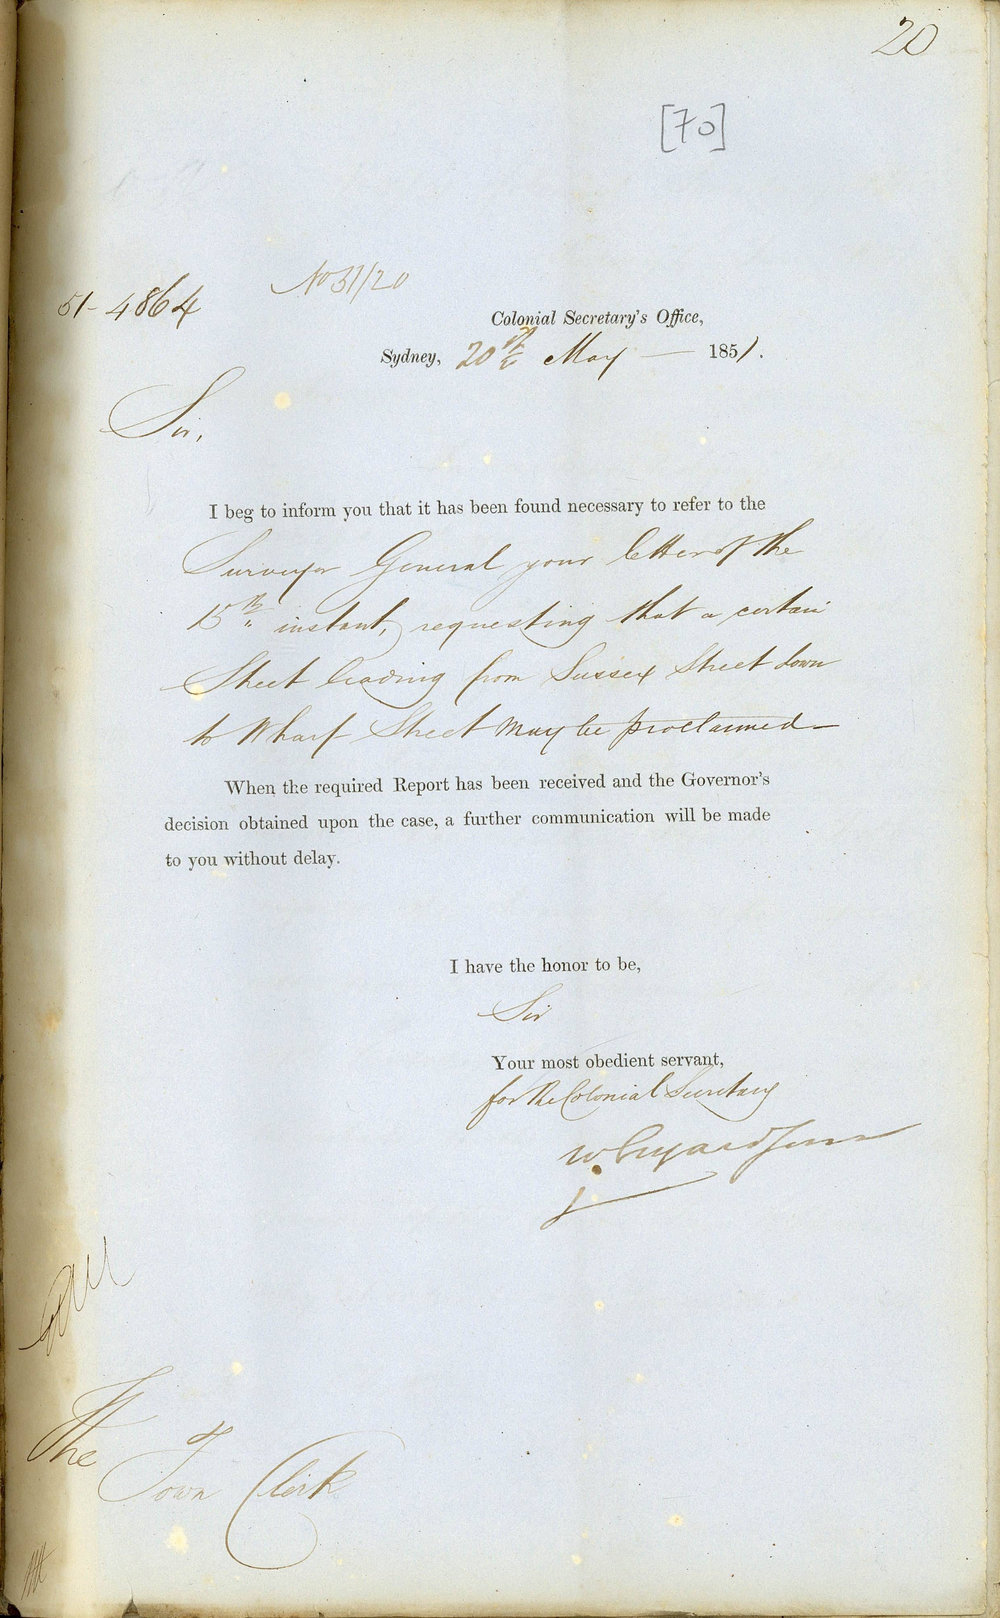 20
[70]
No 51/20
51-4864
Colonial Secretary's Office,
Sydney, 20th May — 1851.
Sir,
I beg to inform you that it has been found necessary to refer to the
Surveyor General your letter of the
15th instant, requesting that a certain
Street leading from Sussex Street down
to Wharf Street may be proclaimed
When the required Report has been received and the Governor's
decision obtained upon the case, a further communication will be made
to you without delay.
I have the honor to be,
Sir
Your most obedient servant,
for the Colonial Secretary
W. Elyard Junr
The
Town Clerk